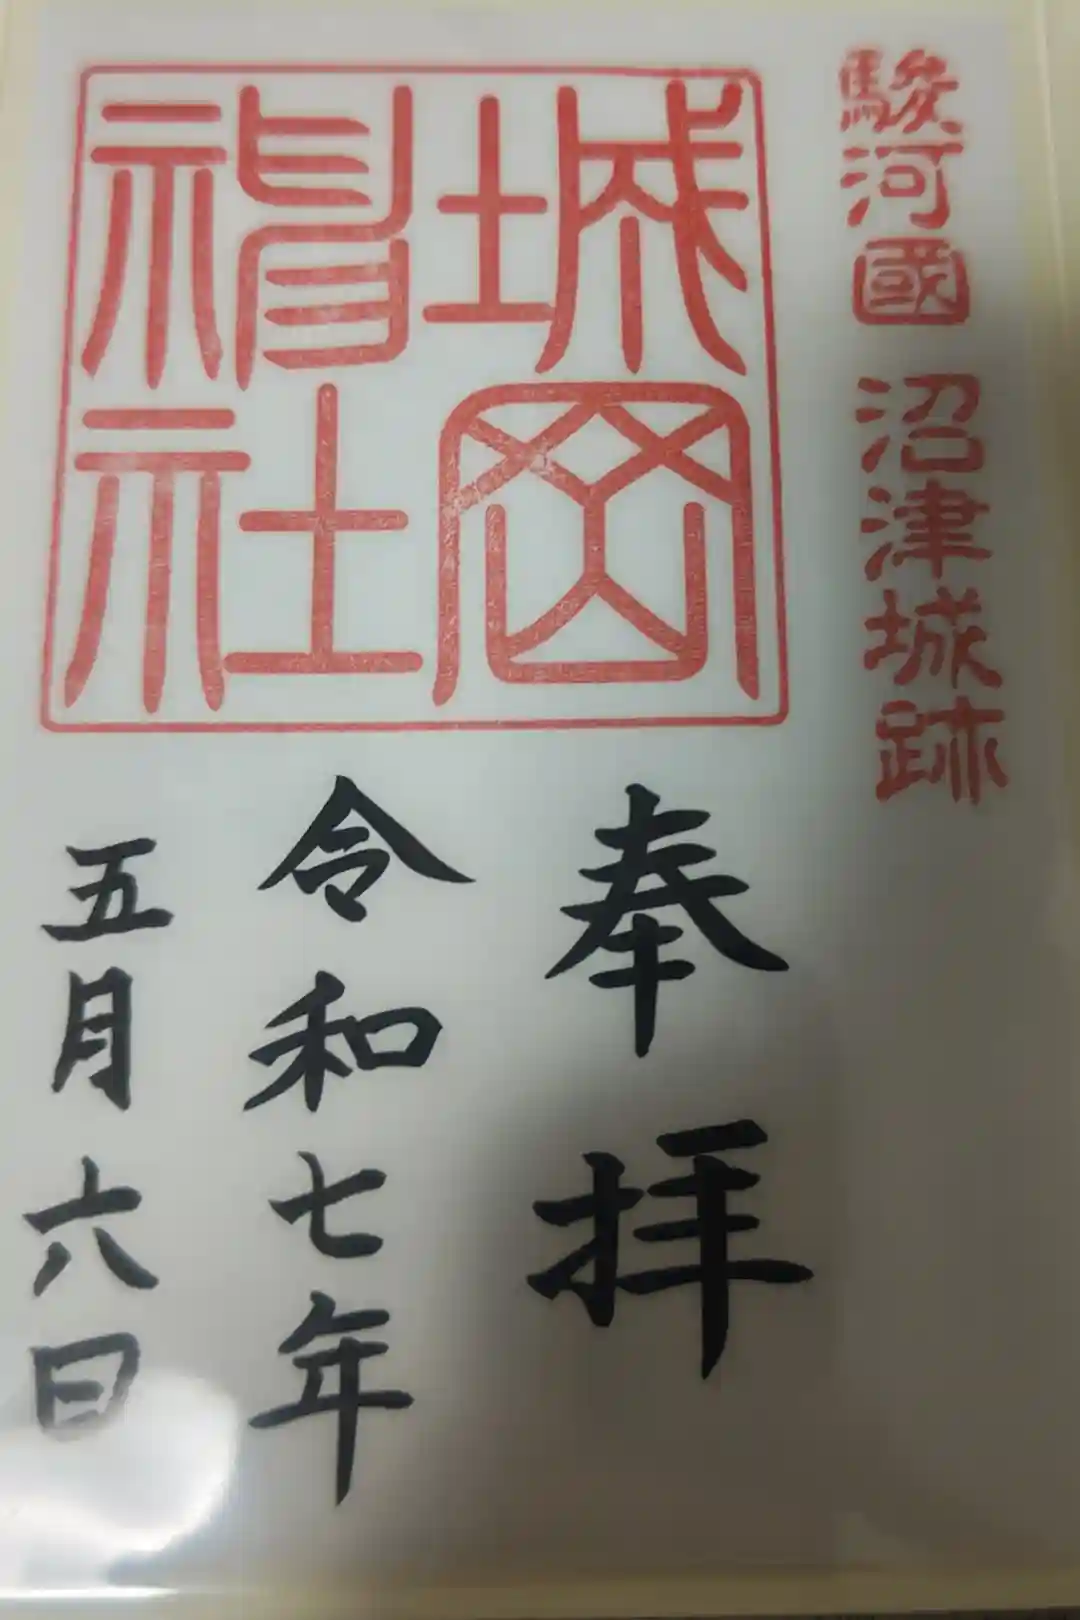 駿河國 沼津城跡
城岡
神社
奉拝
令和七年
五月六日